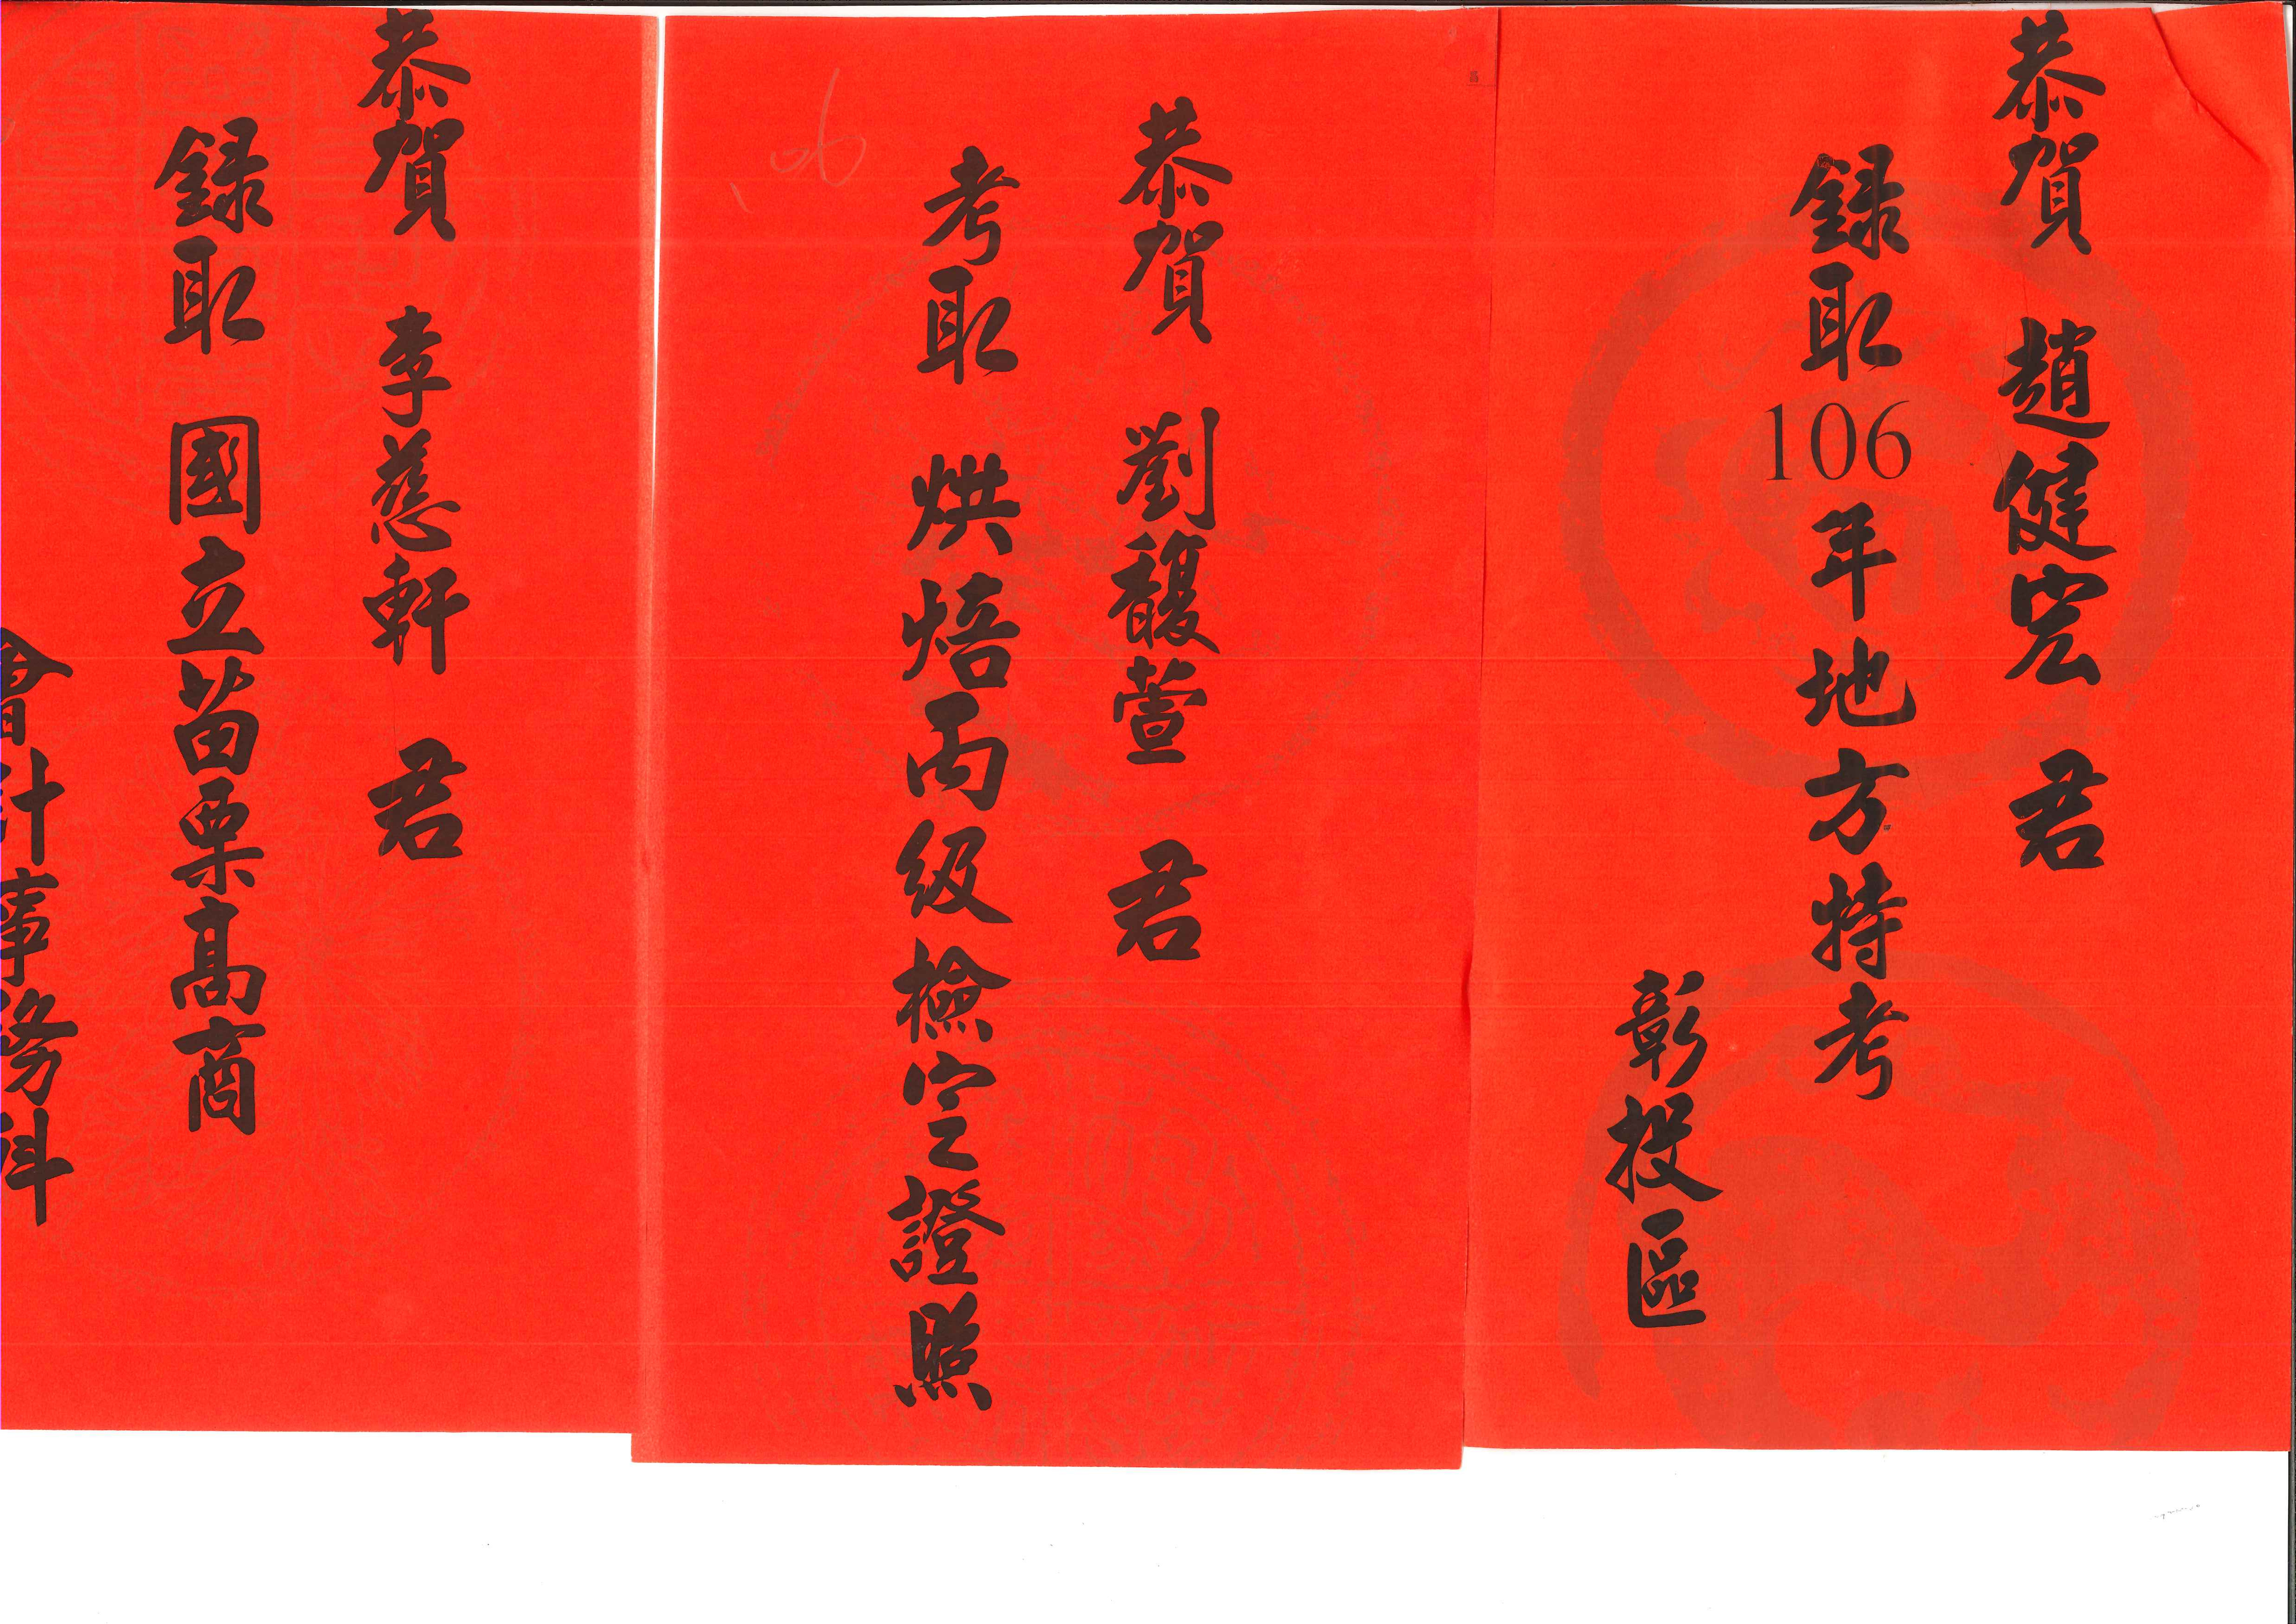 恭賀 趙健宏 君
錄取106年地方特考
彰投區
恭賀 劉馥萱 君
考取 烘焙丙級檢定證照
恭賀 李慈軒 君
錄取 國立苗栗高商
會計事務科